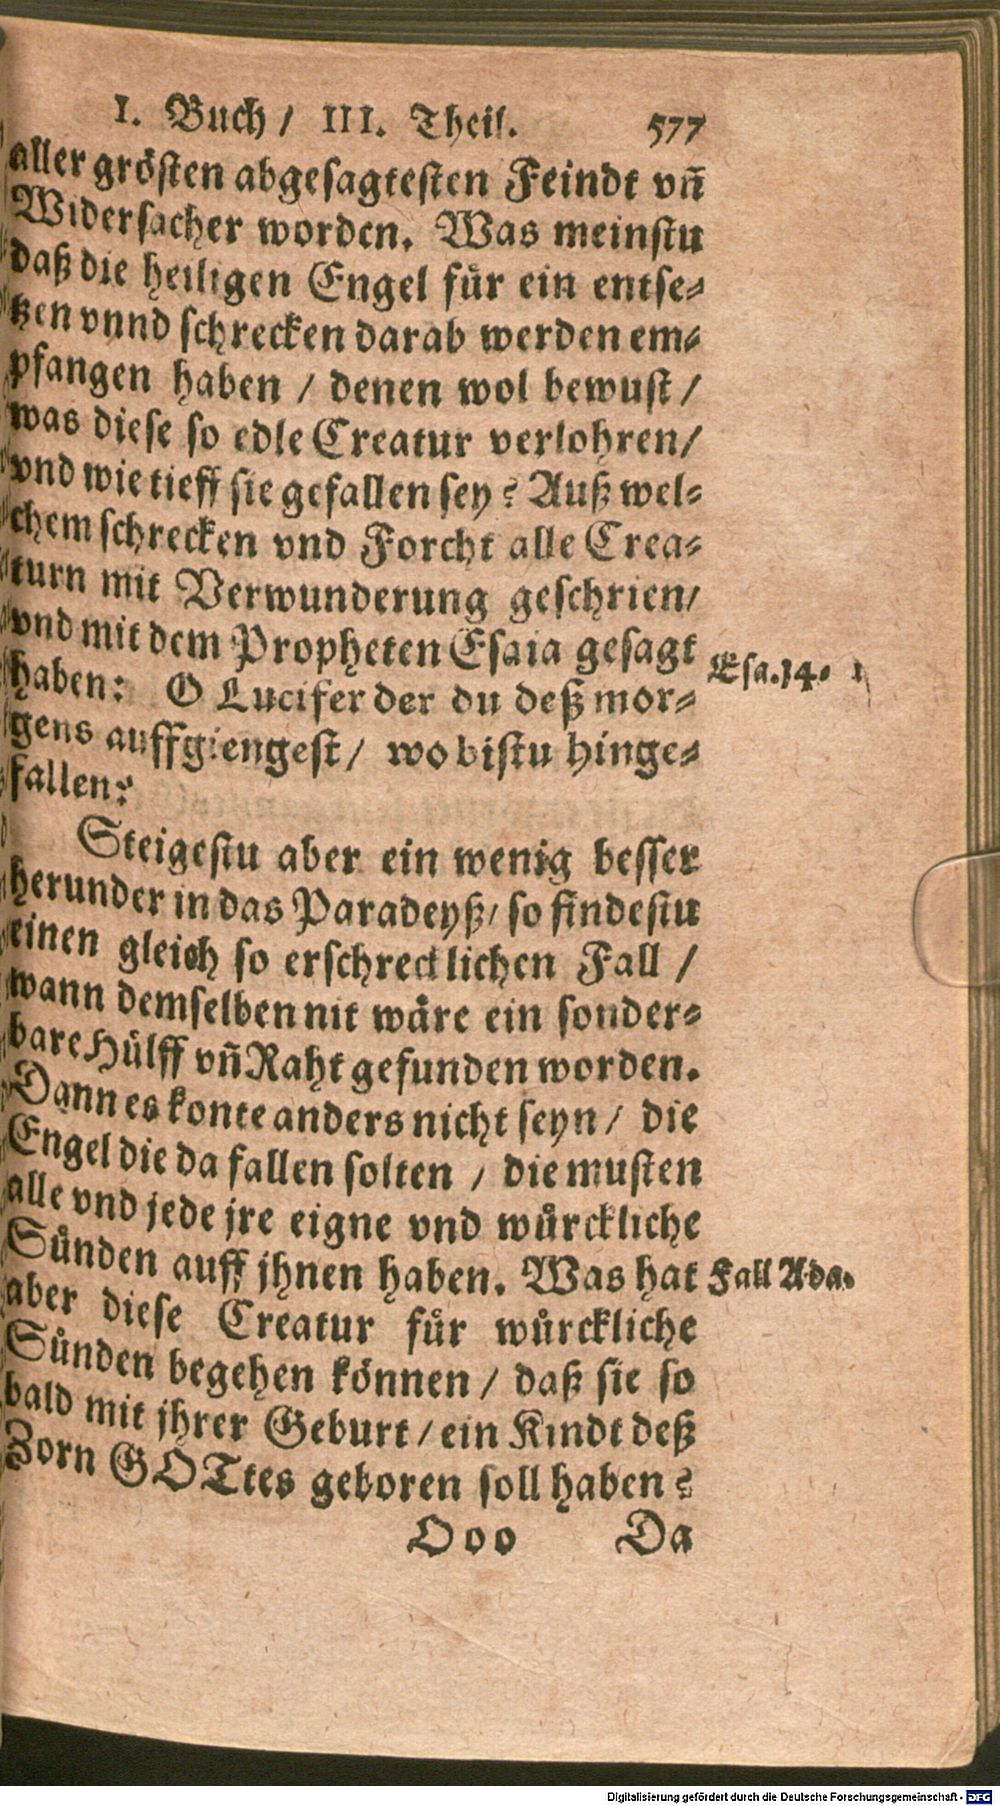 I. Buch / III. Theil. 577
aller grösten abgesagtesten Feindt vn̄
Widersacher worden. Was meinstu
daß die heiligen Engel fůr ein entse-
tzen vnnd schrecken darab werden em-
pfangen haben / denen wol bewust /
was diese so edle Creatur verlohren /
vnd wie tieff sie gefallen sey? Auß wel-
chem schrecken vnd Forcht alle Crea-
turn mit Verwunderung geschrien /
vnd mit dem Propheten Esaia gesagt
Esa. 14.
haben: O Lucifer der du deß mor-
gens auffgiengest / wo bistu hinge-
fallen?
Steigestu aber ein wenig besser
herunder in das Paradeyß / so findestu
einen gleich so erschrecklichen Fall /
wann demselben nit wåre ein sonder-
bare Hůlff vn̄ Raht gefunden worden.
Dann es konte anders nicht seyn / die
Engel die da fallen solten / die musten
alle vnd jede jre eigne vnd wůrckliche
Sůnden auff jhnen haben. Was hat
Fall Ada.
aber diese Creatur fůr wůrckliche
Sůnden begehen können / daß sie so
bald mit jhrer Geburt / ein Kindt deß
Zorn GOTtes geboren soll haben?
Ooo Da
Digitalisierung gefördert durch die Deutsche Forschungsgemeinschaft - DFG